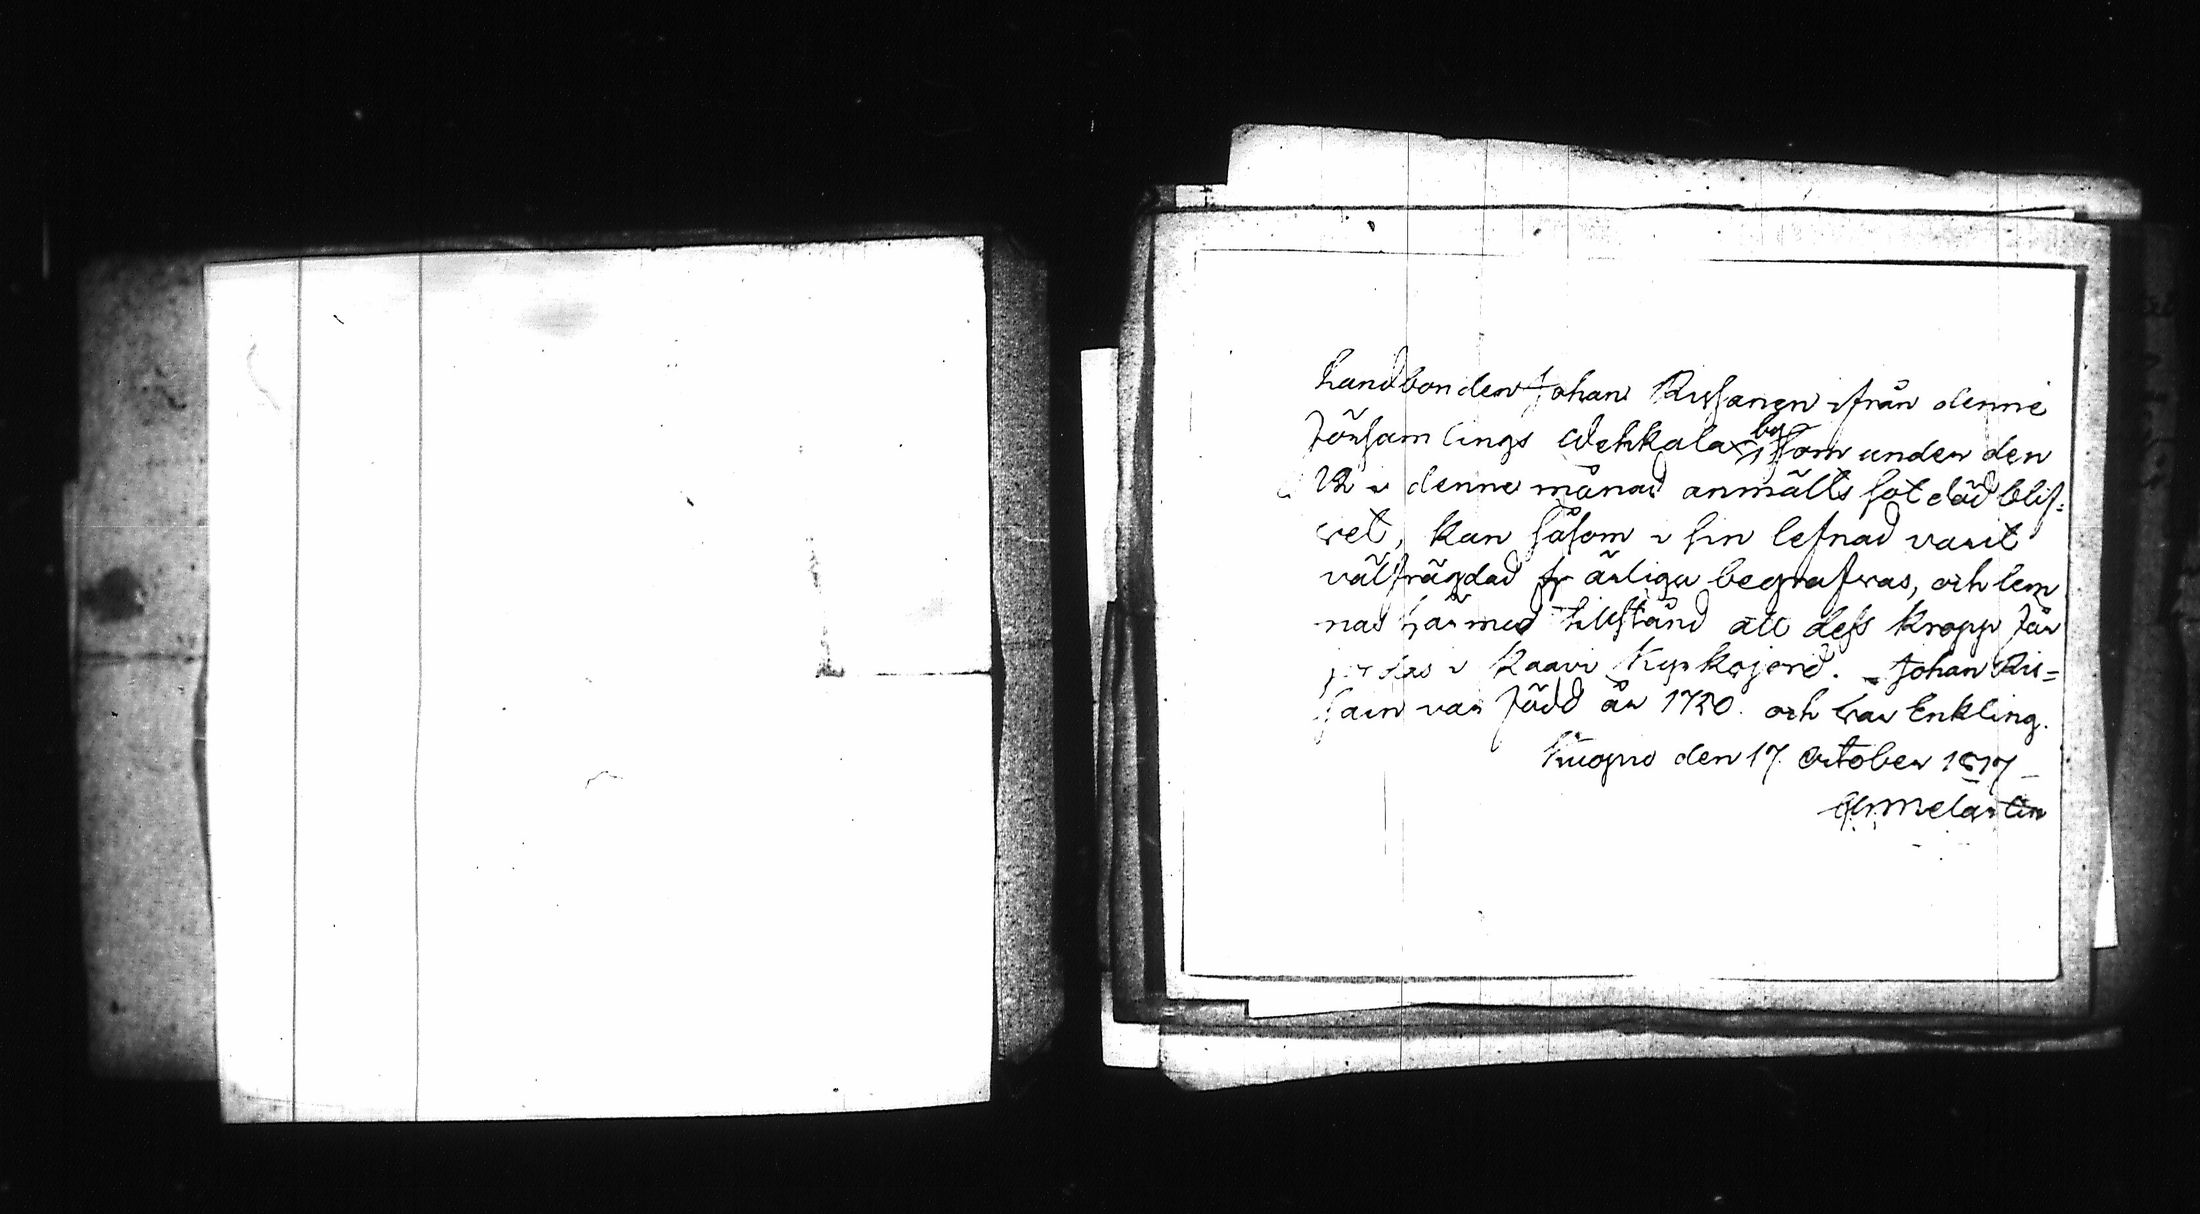 Landbonden Johan Rissanen ifrån denne
församlings Wehkalax by som under den
12 i denne månad anmälts sot död blif=
wet, kan såsom i sin lefnad varit
välfrägdad få ärliga begrafwas, och lem
nas härmed tillstånd att dess kropp får
i Kaavi Kyrkojord. Johan Ris=
sain var född år 1720. och war Enkling.
Kuopio den 17. October 1817